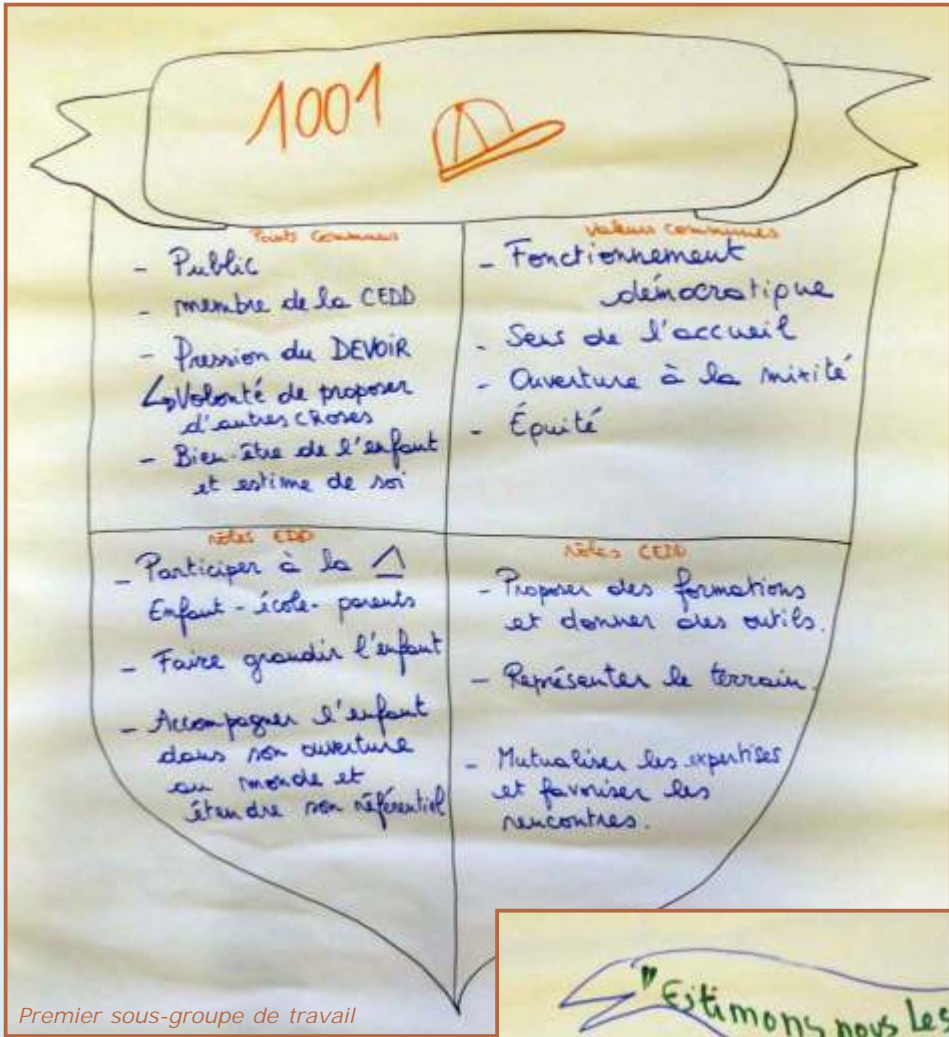 1001
Points Communs
- Public
- membre de la CEDD
- Pression du DEVOIR
↳ Volonté de proposer
d'autres CHoses
- Bien-être de l'enfant
et estime de soi
Valeurs communes
- Fonctionnement
démocratique
- Sens de l'accueil
- Ouverture à la mixité
- Équité
rôles EDD
- Participer à la △
Enfant - école - parents
- Faire grandir l'enfant
- Accompagner l'enfant
dans son ouverture
au monde et
étendre son référentiel
rôles CEDD
- Proposer des formations
et donner des outils.
- Représenter le terrain.
- Mutualiser les expertises
et favoriser les
rencontres.
Premier sous-groupe de travail
"Estimons nous Les